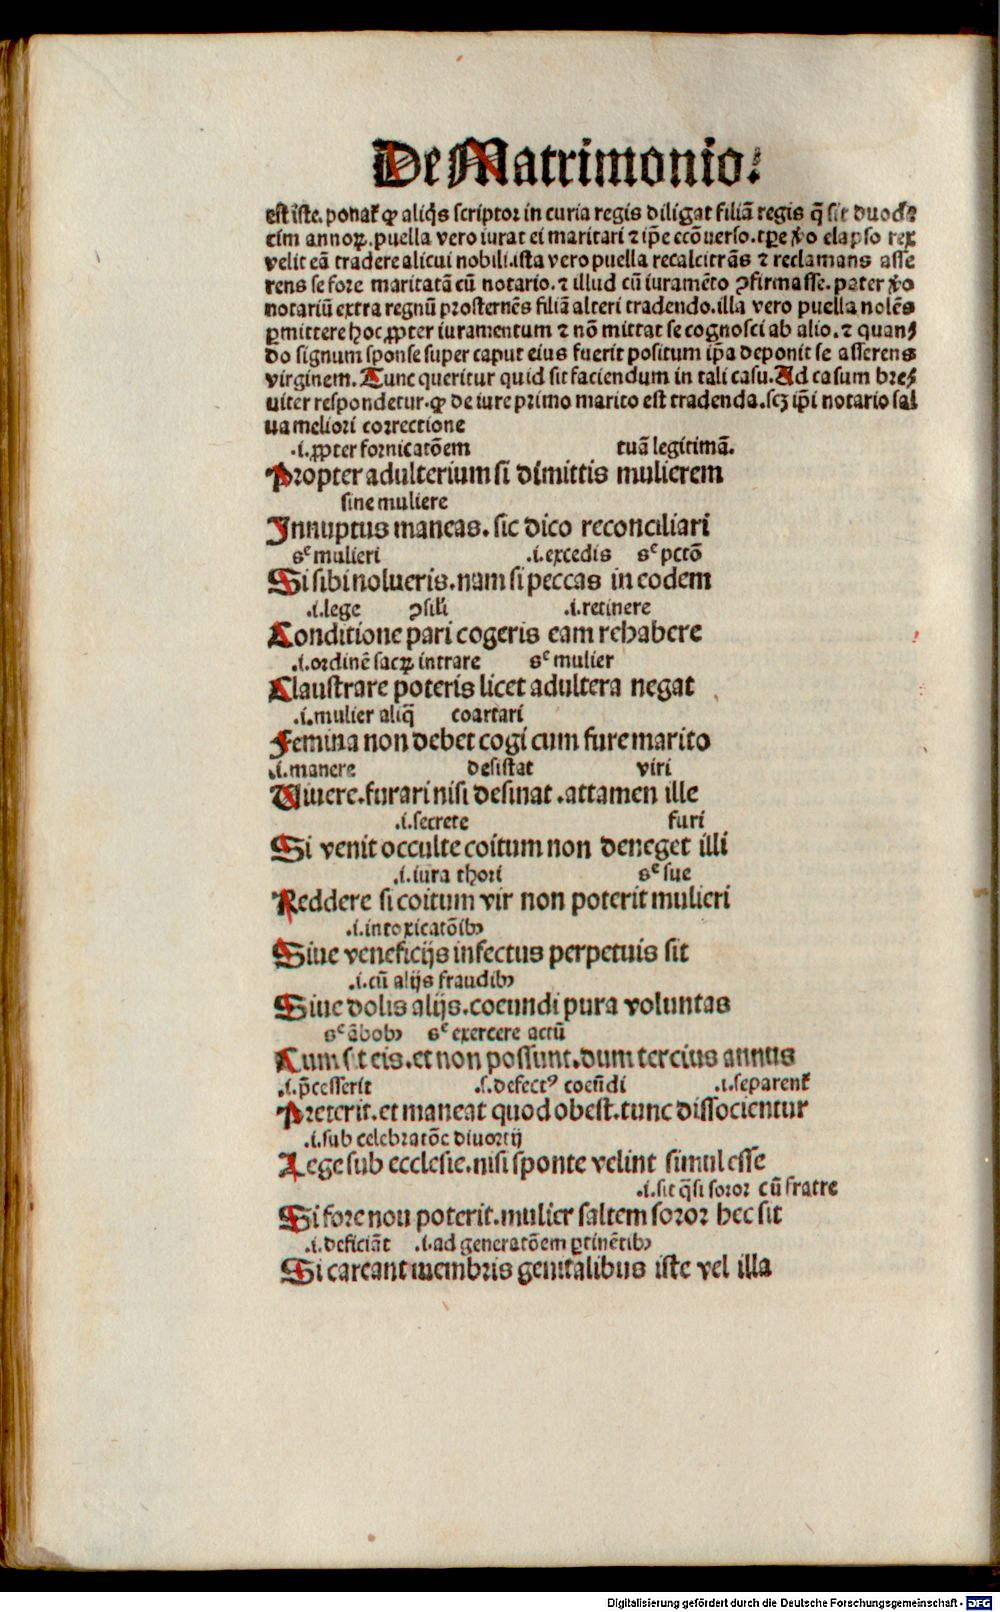 De Matrimonio.
est iste. ponat͛ ꝙ aliq̇s scriptor in curia regis diligat filiā regis q̄ sit duode⸗
cim annoꝝ. puella vero iurat ei maritari ⁊ ip̄e ecōuerso. tꝑe ꝟo elapso rex
velit eā tradere alicui nobili. ista vero puella recalcitrās ⁊ reclamans asse
rens se fore maritatā cū notario. ⁊ illud cū iuramēto ꝯfirmasse. pater ꝟo
notariū extra regnū prosternēs filiā alteri tradendo. illa vero puella nolēs
ꝑmittere hoc ꝓpter iuramentum ⁊ nō mittat se cognosci ab alio. ⁊ quan⸗
do signum sponse super caput eius fuerit positum ip̄a deponit se asserens
virginem. Tunc queritur quid sit faciendum in tali casu. Ad casum bre⸗
uiter respondetur. ꝙ de iure primo marito est tradenda. scꝫ ip̄i notario sal
ua meliori correctione
.i. ꝓpter fornicatōem tuā legitimā.
Propter adulterium si dimittis mulierem
sine muliere
Innuptus maneas. sic dico reconciliari
sᶜ mulieri .i. excedis sᶜ pctō
Si sibi nolueris. nam si peccas in eodem
.i. lege ꝯsili .i. retinere
Conditione pari cogeris eam rehabere
.i. ordinē sacꝝ intrare sᶜ mulier
Claustrare poteris licet adultera negat
.i. mulier aliq̄ coartari
Femina non debet cogi cum fure marito
.i. manere desistat viri
Uiuere. furari nisi desinat. attamen ille
.i. secrete furi
Si venit occulte coitum non deneget illi
.i. iura thori sᶜ sue
Reddere si coitum vir non poterit mulieri
.i. intoxicatōibꝰ
Siue veneficijs infectus perpetuis sit
.i. cū alijs fraudibꝰ
Siue dolis alijs. coeundi pura voluntas
sᶜ ābobꝰ sᶜ exercere actū
Cum sit eis. et non possunt. dum tercius annus
.i. p̄cesserit .s. defectꝰ coeūdi .i. separent͛
Preterit. et maneat quod obest. tunc dissocientur
.i. sub celebratōe diuortij
Lege sub ecclesie. nisi sponte velint simul esse
.i. sit q̄si soror cū fratre
Si fore non poterit. mulier saltem soror hec sit
.i. deficiāt .i. ad generatōem ꝑtinētibꝰ
Si careant membris genitalibus iste vel illa
Digitalisierung gefördert durch die Deutsche Forschungsgemeinschaft - DFG